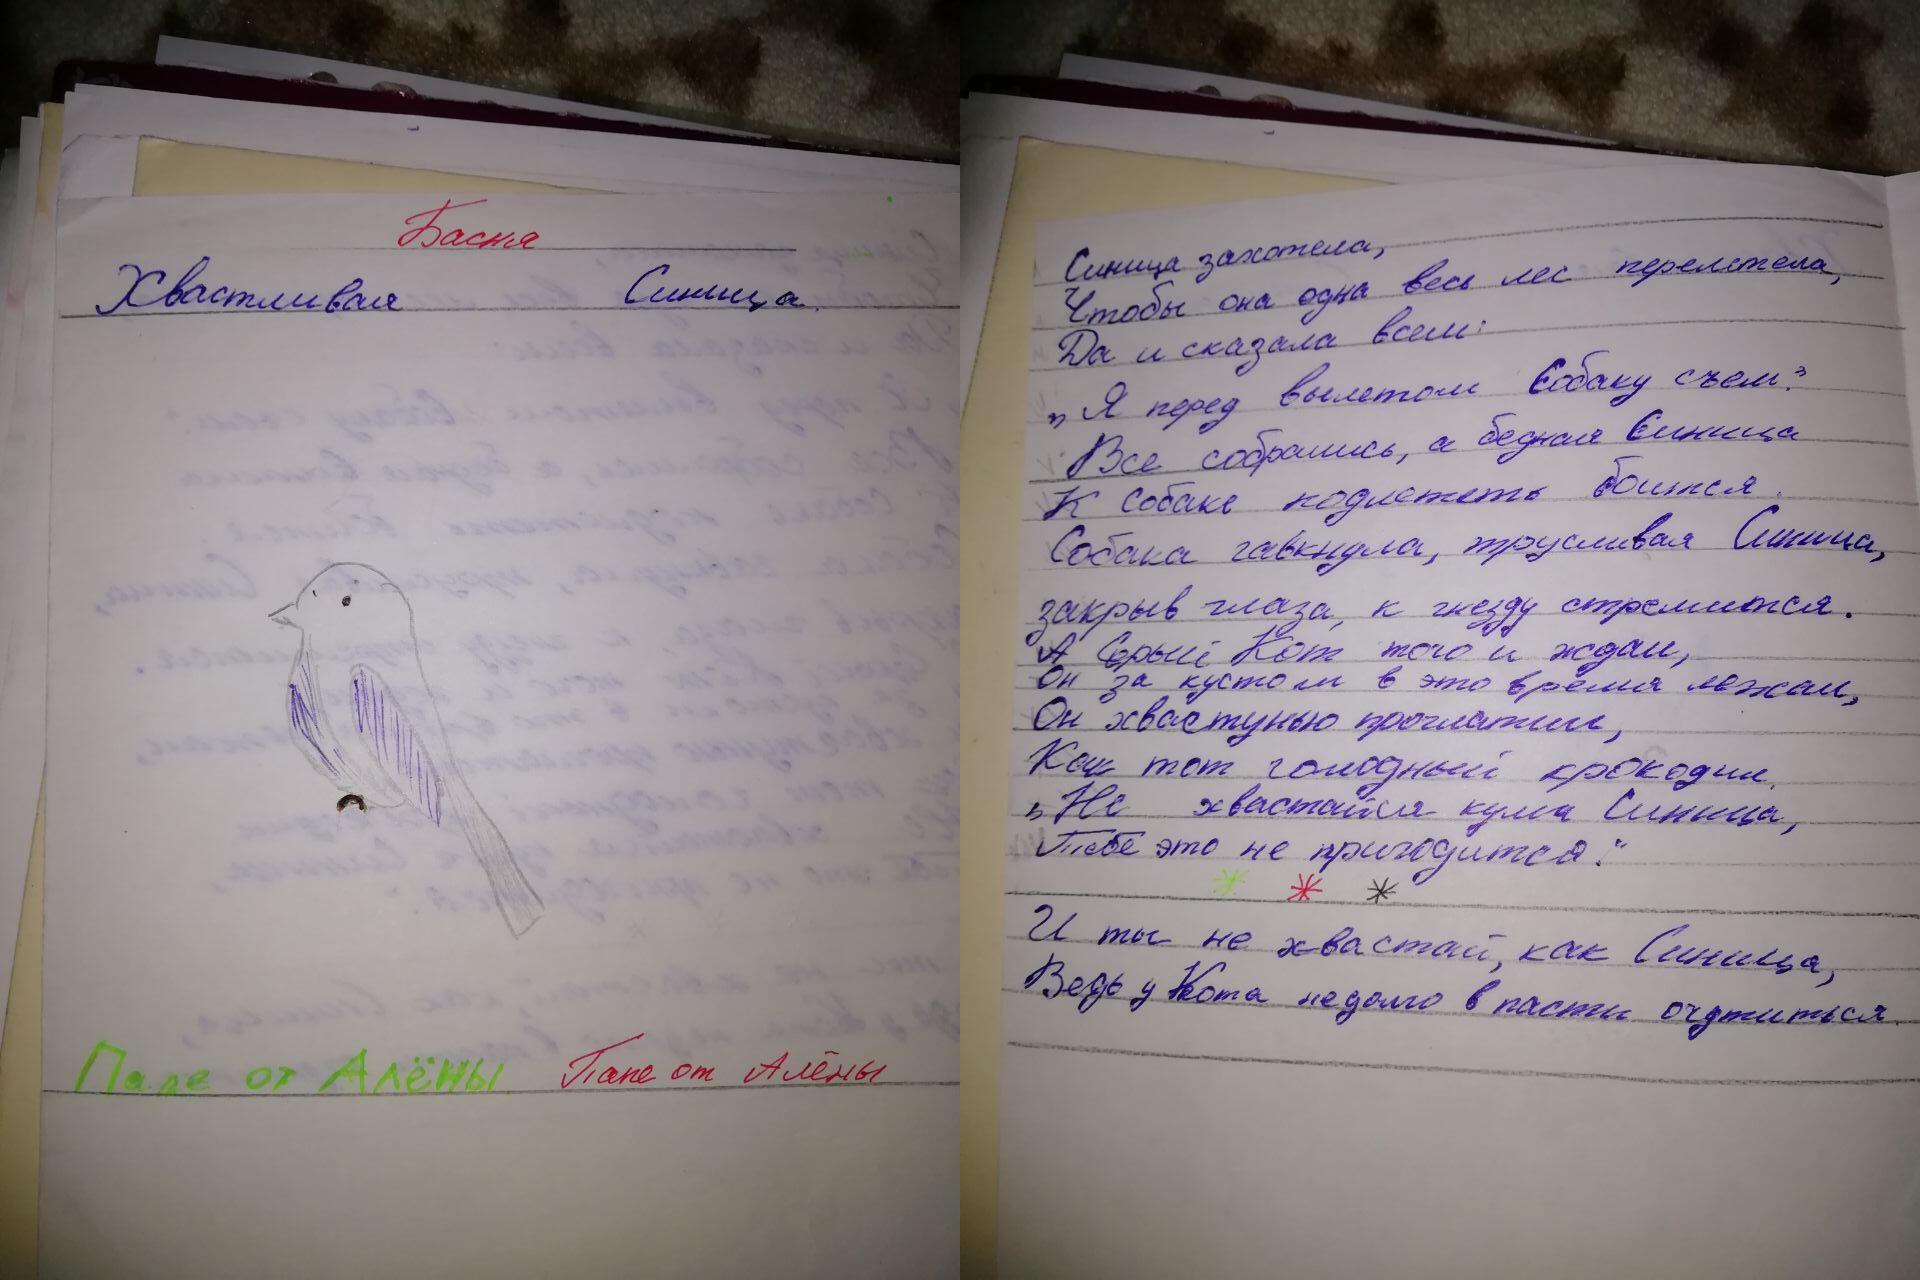 Басня
Хвастливая Синица.
Папе от Алёны Папе от Алёны
Синица захотела,
Чтобы она одна весь лес перелетела,
Да и сказала всем:
„Я перед вылетом Собаку съем."
Все собрались, а бедная Синица
К Собаке подлететь боится.
Собака гавкнула, трусливая Синица,
закрыв глаза, к гнезду стремится.
А Серый Кот того и ждал,
Он за кустом в это время лежал,
Он хвастунью проглатил,
Как тот голодный крокодил.
„Не хвастайся кума Синица,
Тебе это не пригодится."
И ты не хвастай, как Синица,
Ведь у Кота недолго в пасти очутиться.